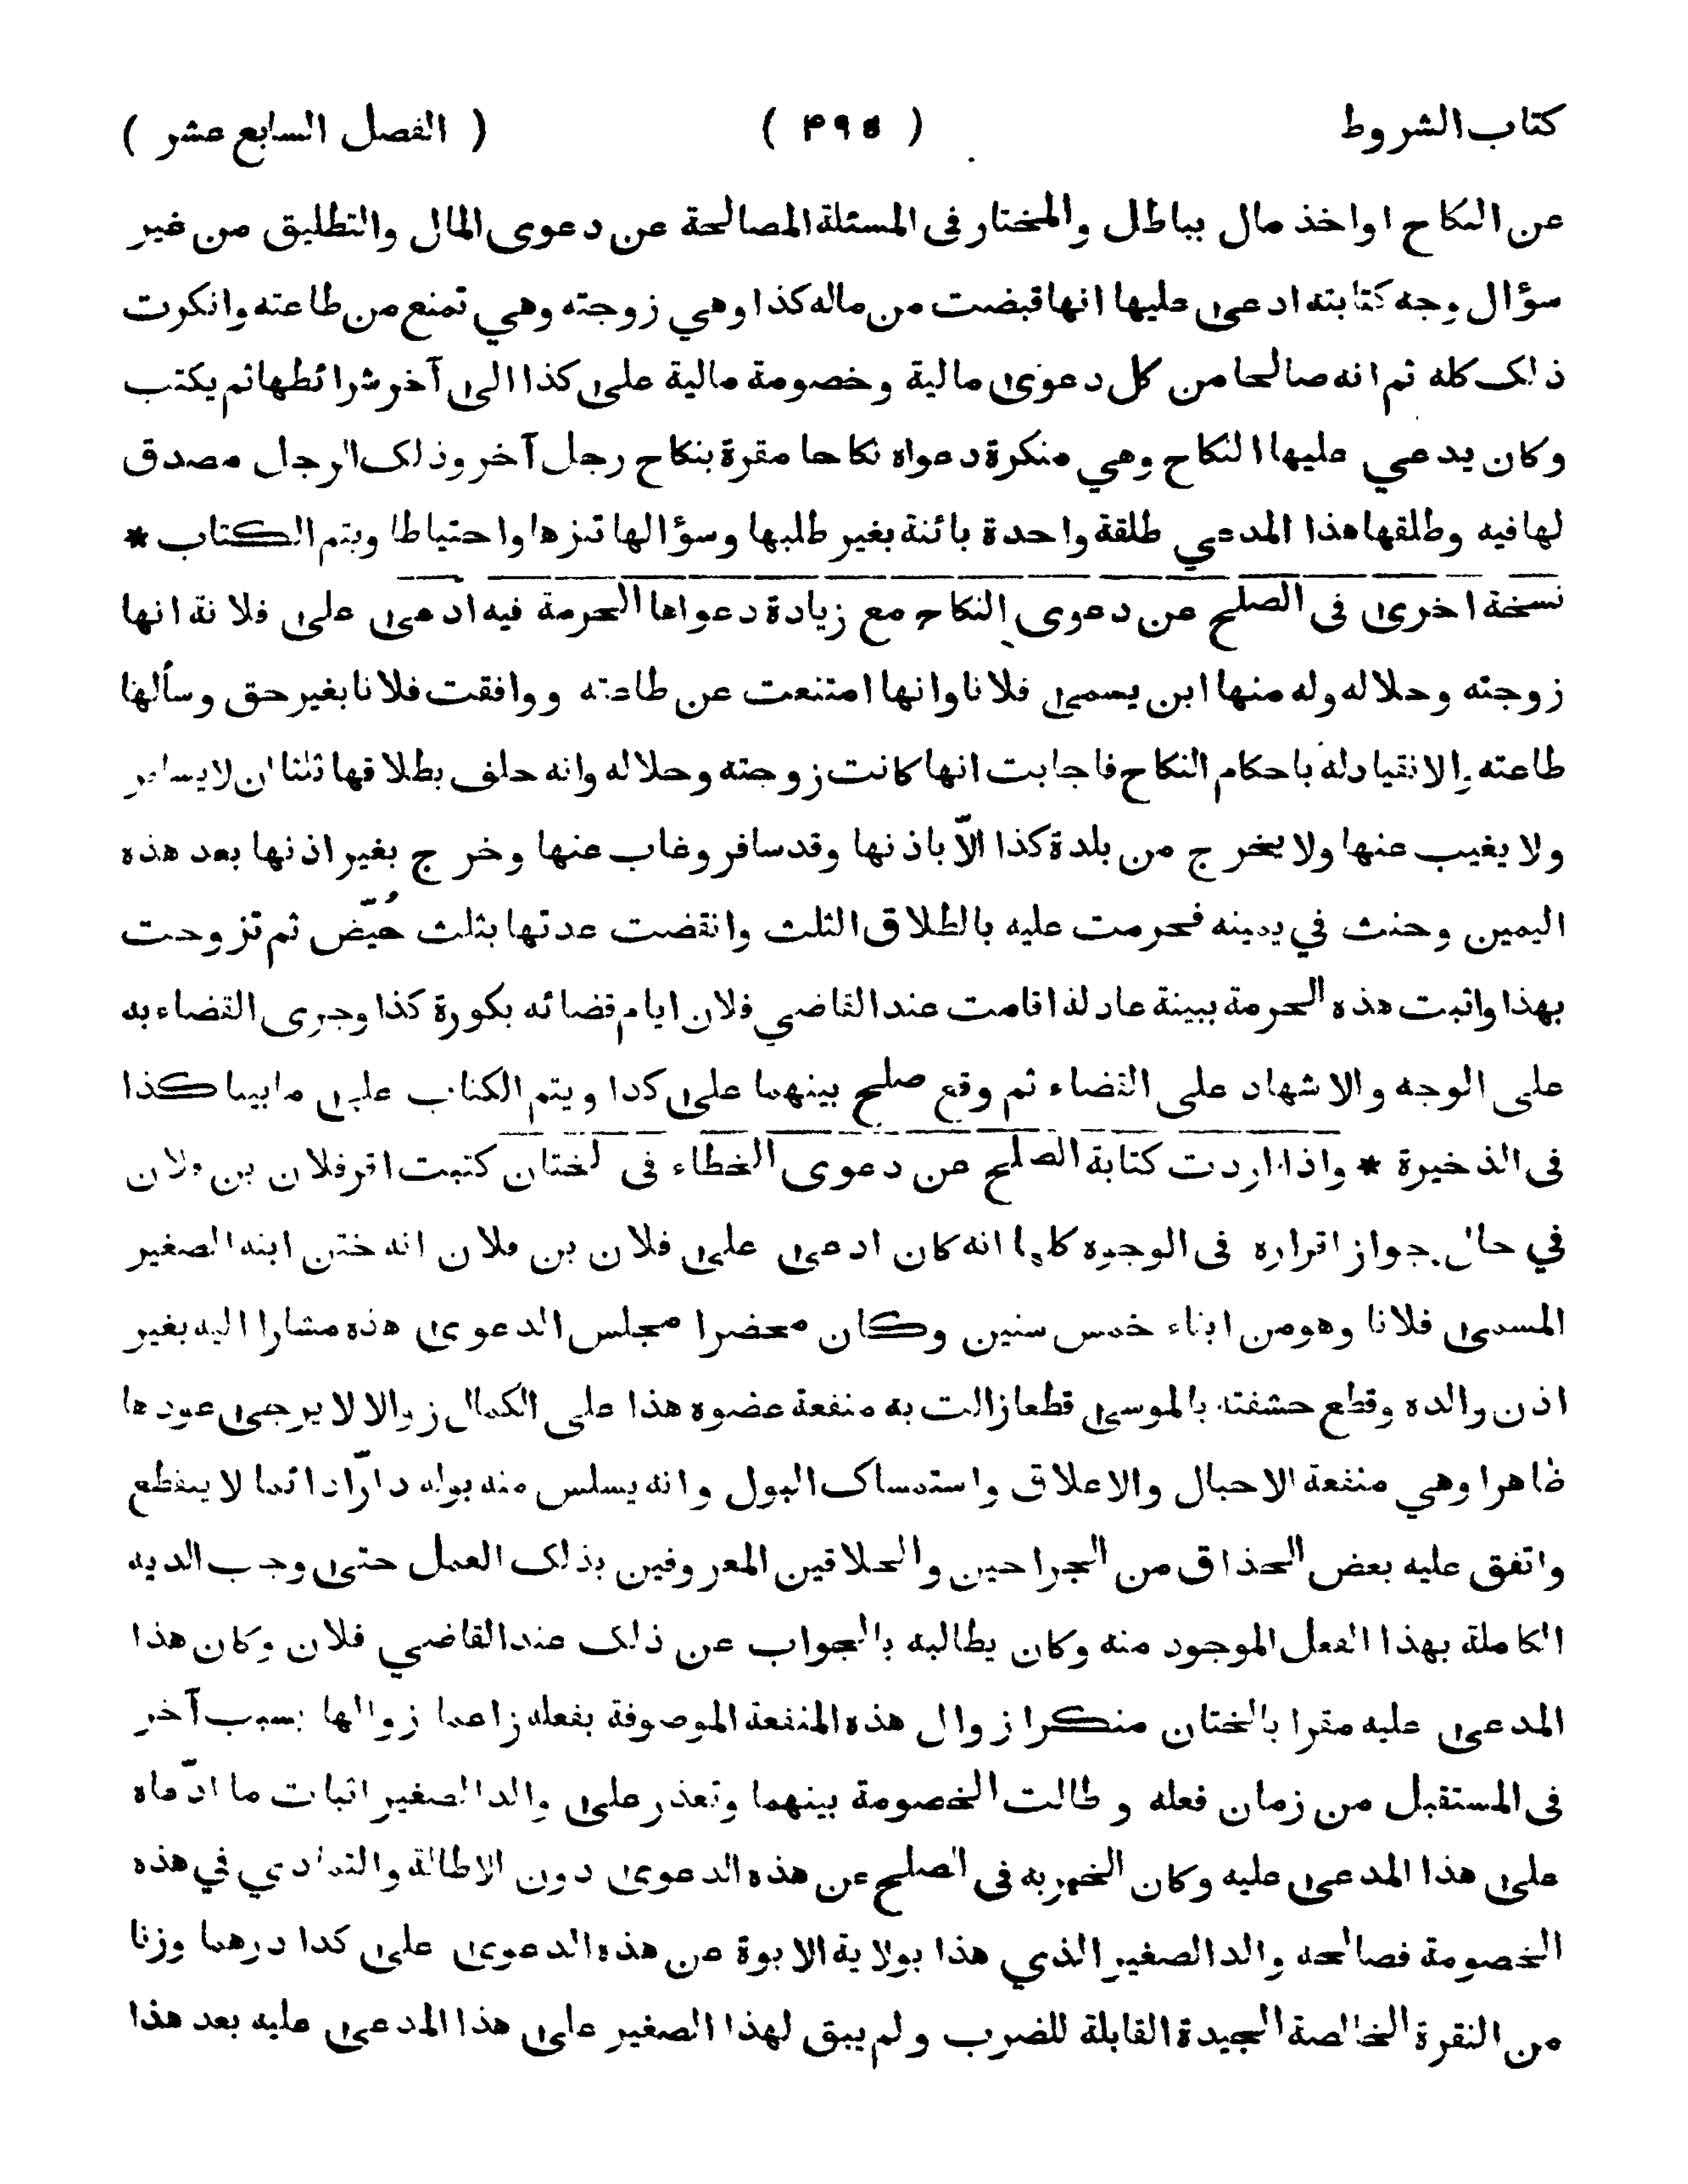 كتاب الشروط ( ۴۹۵ ) ( الفصل السابع عشر )
عن النكاح او اخذ مال بباطل والمختار فى المسئلة المصالحة عن دعوى المال والتطليق من غير
سؤال وجه كتابته ادعى عليها انها قبضت من ماله كذا وهي زوجته وهي تمنع من طاعته وانكرت
ذلك كله ثم انه صالحا من كل دعوى مالية وخصومة مالية على كذا الى آخر شرائطها ثم يكتب
وكان يدعي عليها النكاح وهي منكرة دعواه نكاحا مقرة بنكاح رجل آخر وذلك الرجل مصدق
لها فيه وطلقها هذا المدعي طلقة واحدة بائنة بغير طلبها وسؤالها تنزها واحتياطا ويتم الكتاب *
نسخة اخرى فى الصلح عن دعوى النكاح مع زيادة دعواها الحرمة فيه ادعى على فلانة انها
زوجته وحلاله وله منها ابن يسمى فلانا وانها امتنعت عن طاعته ووافقت فلانا بغير حق وسألها
طاعته والانقياد له باحكام النكاح فاجابت انها كانت زوجته وحلاله وانه حلف بطلاقها ثلثا ان لا يسافر
ولا يغيب عنها ولا يخرج من بلدة كذا الّا باذنها وقد سافر وغاب عنها وخرج بغير اذنها بعد هذه
اليمين وحنث في يمينه فحرمت عليه بالطلاق الثلث وانقضت عدتها بثلث حُيّض ثم تزوجت
بهذا واثبت هذه الحرمة ببينة عادلة اقامت عند القاضي فلان ايام قضائه بكورة كذا وجرى القضاء به
على الوجه والاشهاد على القضاء ثم وقع صلح بينهما على كذا ويتم الكتاب على ما بينا كذا
فى الذخيرة * واذا اردت كتابة الصلح عن دعوى الخطاء فى الختان كتبت اقر فلان بن فلان
في حال جواز اقراره فى الوجوه كلها انه كان ادعى على فلان بن فلان انه ختن ابنه الصغير
المسمى فلانا وهو من ابناء خمس سنين وكان محضرا مجلس الدعوى هذه مشارا اليه بغير
اذن والده وقطع حشفته بالموسى قطعا زالت به منفعة عضوه هذا على الكمال زوالا لا يرجى عودها
ظاهرا وهي منفعة الاحبال والاعلاق واستمساك البول وانه يسلس منه بوله دارّا دائما لا ينقطع
واتفق عليه بعض الحذاق من الجراحين والحلاقين المعروفين بذلك العمل حتى وجب الديه
الكاملة بهذا الفعل الموجود منه وكان يطالبه بالجواب عن ذلك عند القاضي فلان وكان هذا
المدعى عليه مقرا بالختان منكرا زوال هذه المنفعة الموصوفة بفعله زاعما زوالها بسبب آخر
فى المستقبل من زمان فعله وطالت الخصومة بينهما وتعذر على والد الصغير اثبات ما ادّعاه
على هذا المدعى عليه وكان الخيرية فى الصلح عن هذه الدعوى دون الاطالة والتمادي في هذه
الخصومة فصالحه والد الصغير الذي هذا بولاية الابوة عن هذه الدعوى على كذا درهما وزنا
من النقرة الخالصة الجيدة القابلة للضرب ولم يبق لهذا الصغير على هذا المدعى عليه بعد هذا